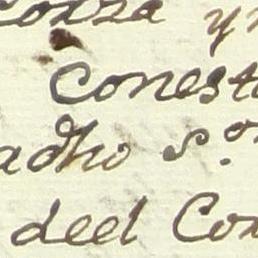 coxza yn
conest
adho S.or
deel Cor